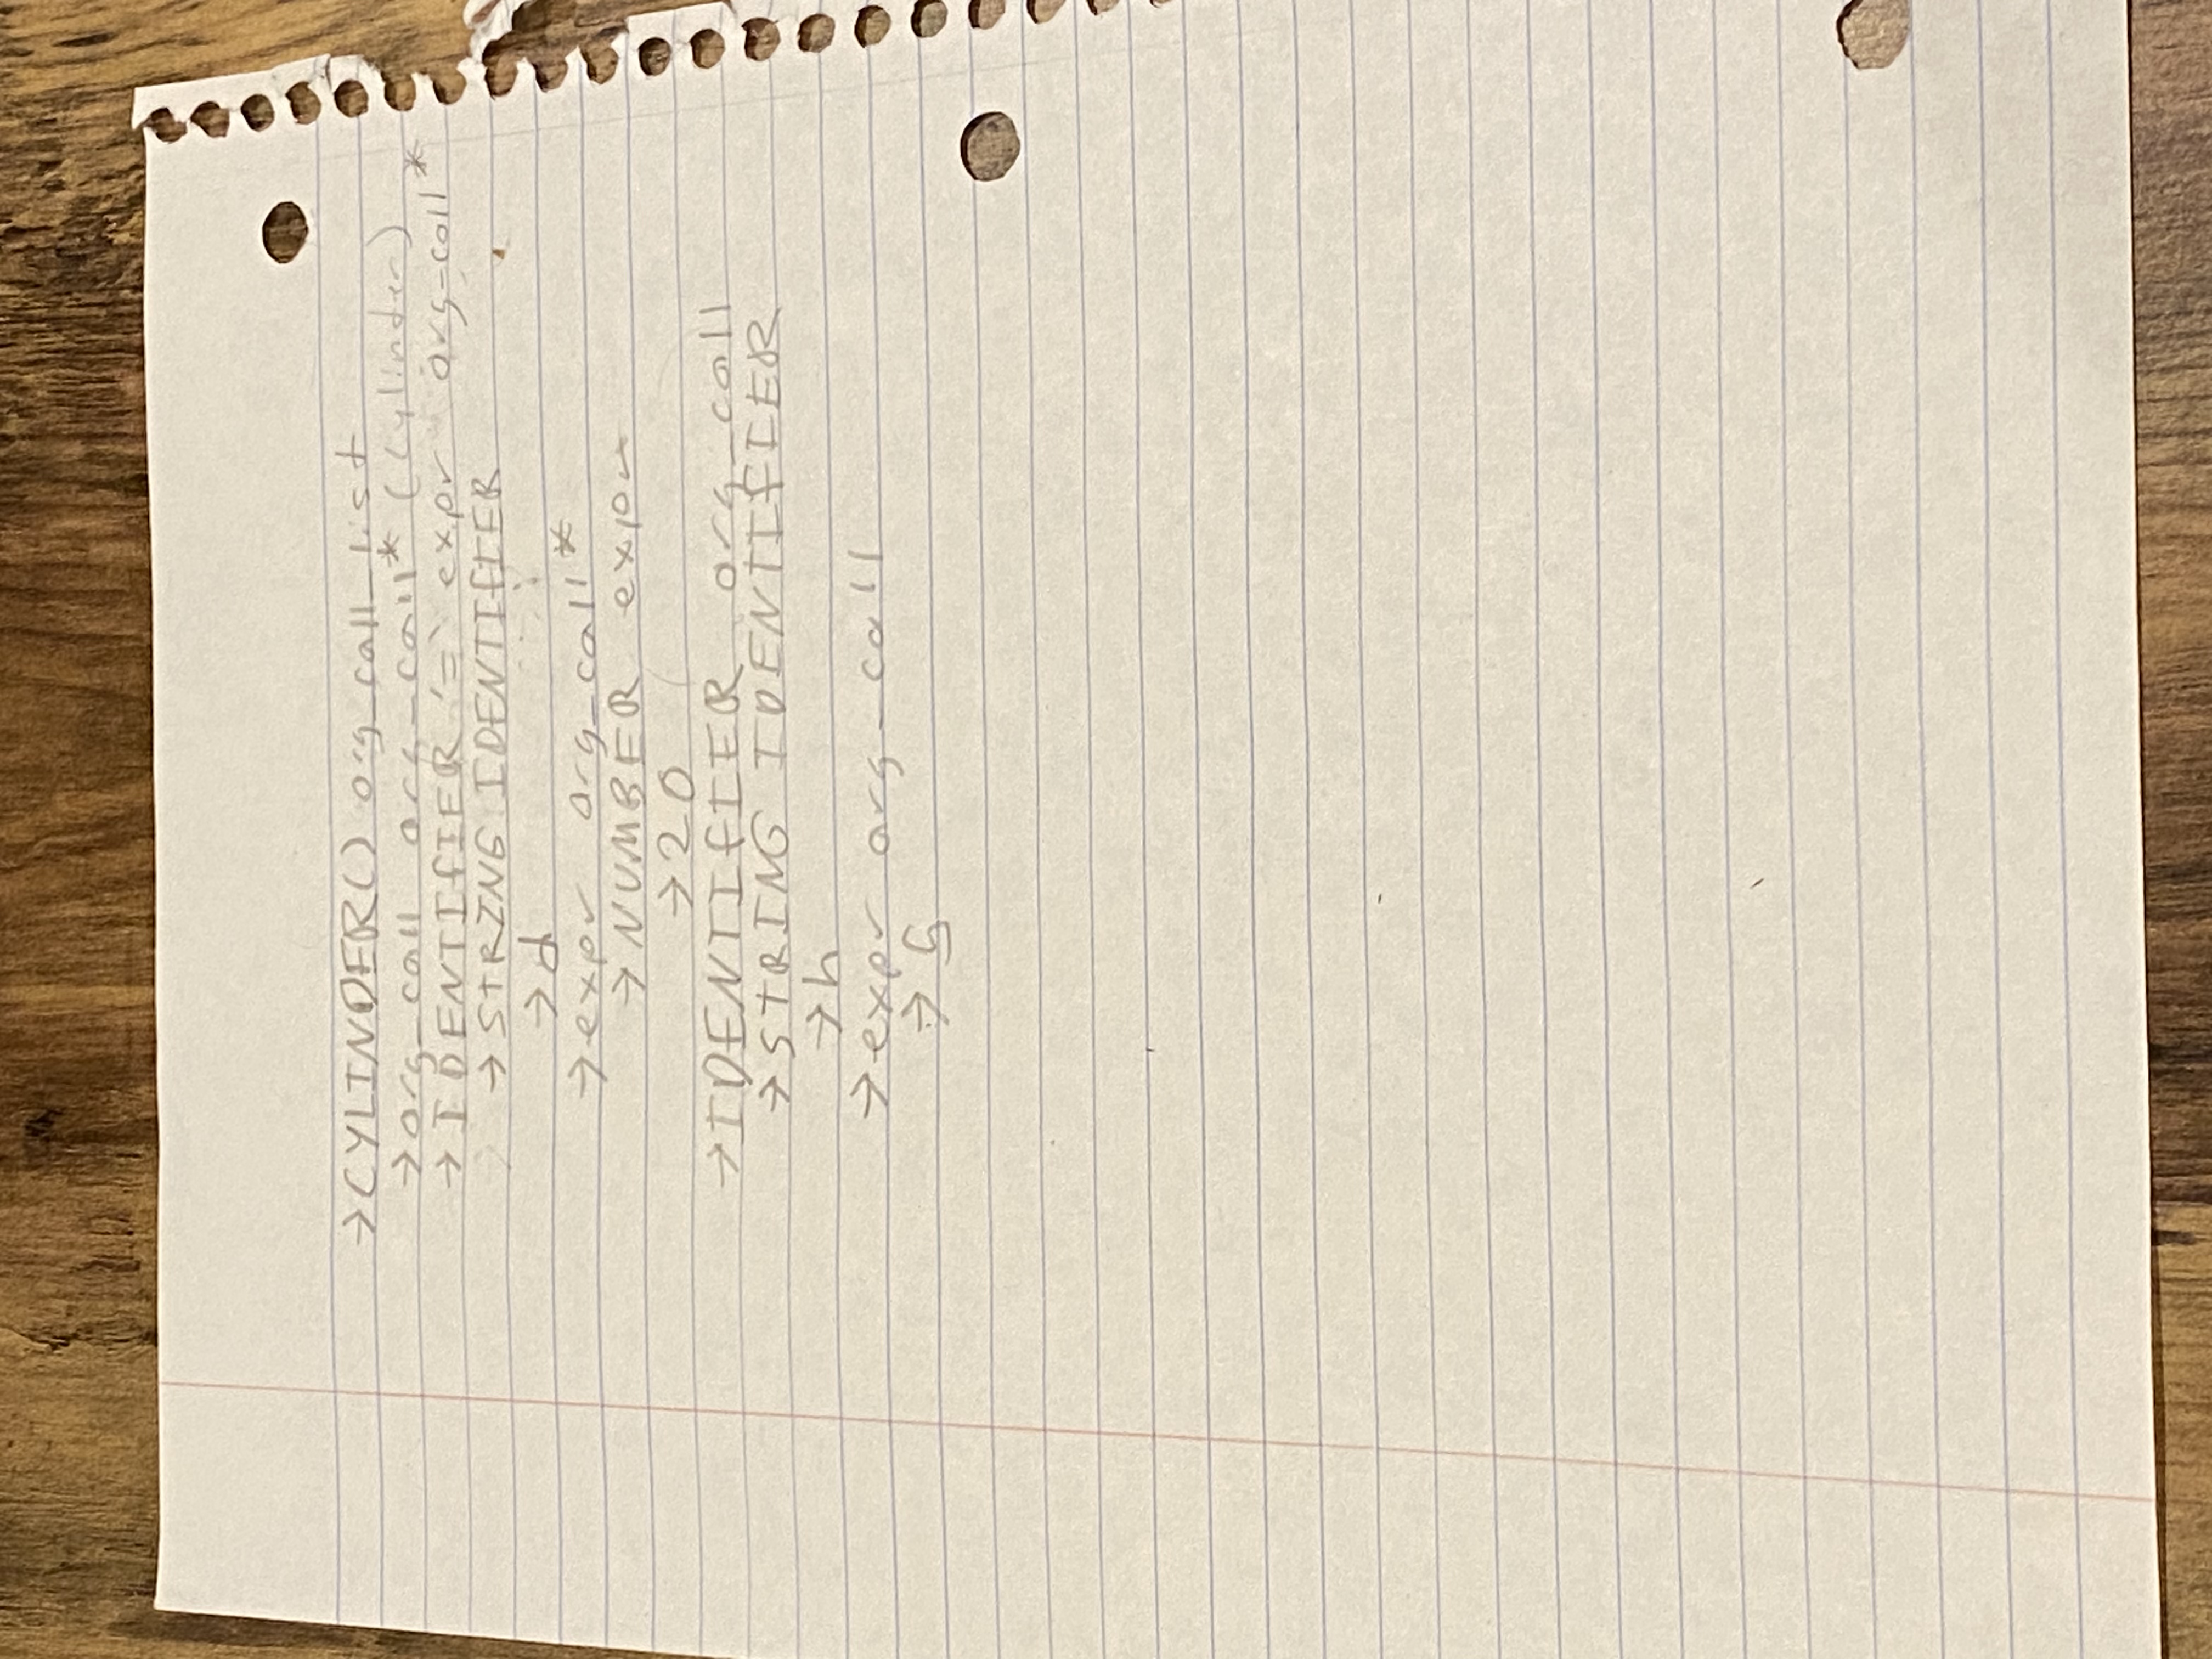 →CYLINDER() arg_call_list
→arg_call arg_call* (Cylinder)
→IDENTIFIER '=' expr arg_call*
→STRING IDENTIFIER
→d
→expr arg_call*
→NUMBER expr
→20
→IDENTIFIER arg_call
→STRING IDENTIFIER
→h
→expr arg_call
→5